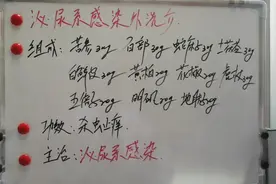 泌尿系感染外洗方
组成: 苦参30g 百部30g 蛇床子30g 土茯苓30g
白鲜皮30g 黄柏20g 花椒20g
五倍子20g 明矾20g 地肤子30g
功效: 杀虫止痒
主治: 泌尿系感染